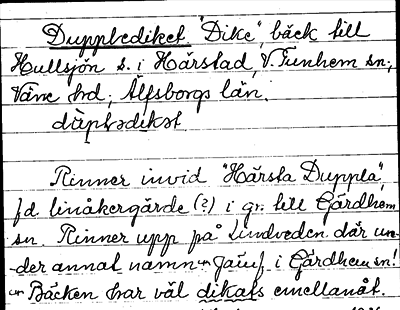 Dupplediket "Dike", bäck till
Hullsjön s. i Hårstad, V. Tunhem sn,
Väne hrd, Älfsborgs län.
Rinner invid "Hårsta Duppla",
fd. linåkergärde (?) i gr. till Gärdhem
sn. Rinner upp på Lindveden där un-
-der annat namn i Gärdhem sn!
Bäcken har väl dikats emellanåt.